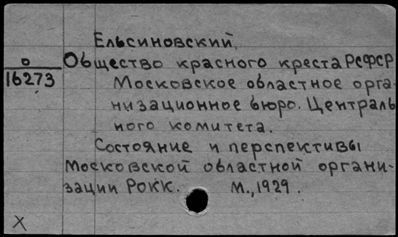 Ельсиновский,
о
16273
Общество красного креста РСФСР
Московское областное орга-
низационное бюро. Централь
ного комитета.
Состояние и перспективы
Московской областной органи-
зации РОКК. М., 1929.
X